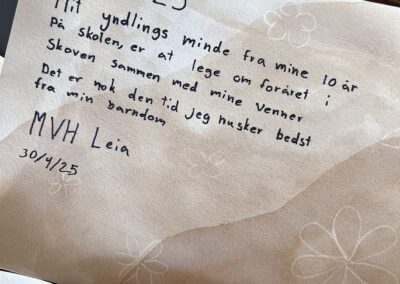 Mit yndlings minde fra mine 10 år
På skolen, er at lege om foråret i
Skoven sammen med mine venner
Det er nok den tid jeg husker bedst
fra min barndom
MVH Leia
30/4/25